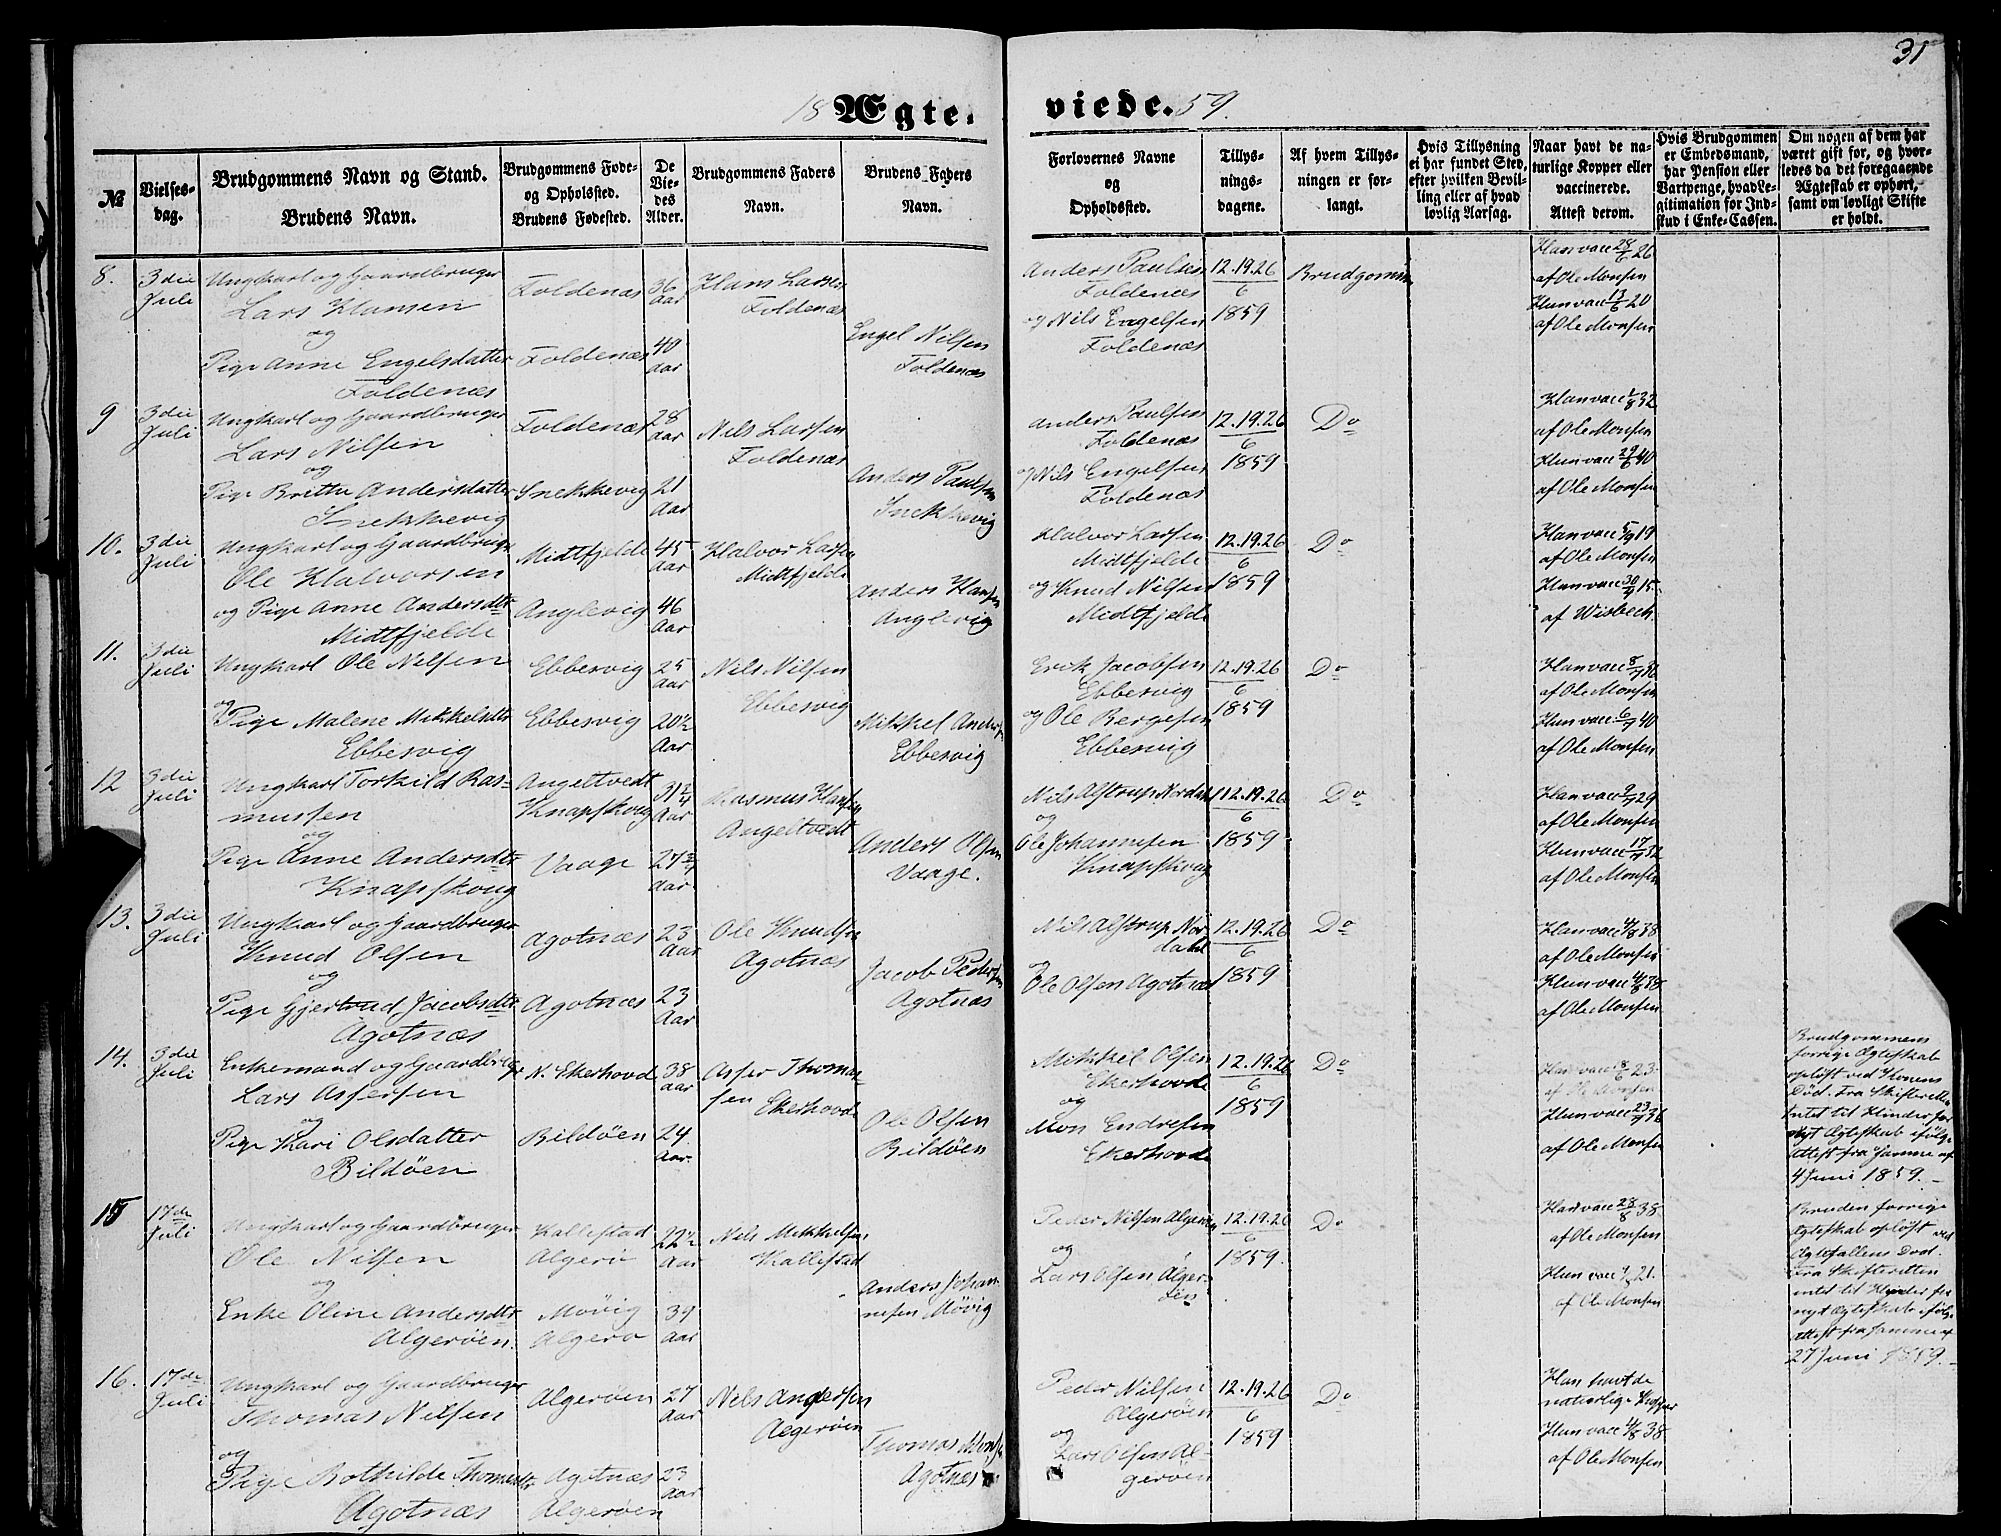 31
18 Ægte-viede. 59.
№
Vielses-
dag.
Brudgommens Navn og Stand.
Brudens Navn.
Brudgommens Føde-
og Opholsted.
Brudens Fødested.
De
Vie-
des
Alder.
Brudgommens Faders
Navn.
Brudens Faders
Navn.
Forlovernes Navne
og
Opholdssted.
Tillys-
nings-
dagene.
Af hvem Tillys-
ningen er for-
langt.
Hvis Tillysning
ei har fundet Sted,
efter hvilken Bevil-
ling eller af hvad
lovlig Aarsag.
Naar havt de na-
turlige Kopper eller
vaccinerede.
Attest derom.
Hvis Brudgommen
er Embedsmand,
har Pension eller
Vartpenge, hvad Le-
gitimation for Ind-
skud i Enke-Cassen.
Om nogen af dem har
været gift før, og hvor-
ledes da det foregaaende
Ægteskab er ophørt,
samt om lovligt Skifte
er holdt.
8.
3die
Juli
Ungkarl og Gaardbruger
Lars Hansen
og
Pige Anne Engelsdatter
Foldenæs
Foldenæs
Foldenæs
36
Aar
40
Aar
Hans Larsen
Foldenæs
Engel Nilsen
Foldenæs
Anders Paulsen
Foldenæs
og Nils Engelsen
Foldenæs
12.19.26
6
1859
Brudgomm
Han vacc 28/6 26
af Ole Monsen
Hun vacc 13/6 20
af Ole Monsen
9
3die
Juli
Ungkarl og Gaardbruger
Lars Nilsen
og
Pige Brithe Andersdatter
Snekkevig
Foldenæs
Snekkevig
28
Aar
21
Aar
Nils Larsen
Foldenæs
Anders Paulsen
Snekkevig
Anders Paulsen
Foldenæs
og Nils Engelsen
Foldenæs
12.19.26
6
1859
Do
Han vacc 1/8 32
af Ole Monsen
Hun vacc 29/6 40
af Ole Monsen
10.
3die
Juli
Ungkarl og Gaardbruge
Ole Halvorsen
og Pige Anne Andersdtr
Midtfjelde
Midtfjelde
Anglevig
45
Aar
46
Aar
Halvor Larsen
Midtfjelde
Anders Hansen
Anglevig
Halvor Larsen
Midtfjelde
og Knud Nilsen
Midtfjelde
12.19.26
6
1859
Do
Han vacc 5/9 19
af Ole Monsen
Hun vacc 30/9 15.
af Wisbech.
11.
3die
Juli
Ungkarl Ole Nilsen
og
Pige Malene Mikkelsdtr
Ebbesvig
Ebbesvig
Ebbesvig
25
Aar
20½
Aar
Nils Nilsen
Ebbesvig
Mikkel Anders
Ebbesvig
Erik Jacobsen
Ebbesvig
og Ole Bergesen
Ebbesvig
12.19.26
6
1859
Do
Han vacc 8/7 36
af Ole Monsen
Hun vacc 6/7 40
af Ole Monsen
12
3die
Juli
Ungkarl Torkild Ras-
mussen
og
Pige Anne Andersdtr
Knapskoug
Angeltvedt
Knapskoug
Vaage
Aar
Aar
Rasmus Hansen
Angeltvedt
Anders Olsen
Vaage.
Nils Alstrup Nordahl
og
Ole Johannesen
Knapskoug
12.19.26
6
1859
Do
Han vacc 2/7 29
af Ole Monsen
Hun vacc 17/7 32
af Ole Monsen
13.
3die
Juli
Ungkarl og Gaardbruger
Knud Olsen
og
Pige Gjertrud Jacobsdtr
Agotnæs
Agotnæs
Agotnæs
23
Aar
23
Aar
Ole Knudsen
Agotnæs
Jacob Pedersen
Agotnæs
Nils Alstrup Nor
dahl
og
Ole Olsen Agotnæs
12.19.26
6
1859
Do
Han vacc 4/8 38
af Ole Monsen
Hun vacc 4/8 38
af Ole Monsen
14.
3die
Juli
Enkemand og Gaardbruger
Lars Assersen
og
Pige Kari Olsdatter
Bildöen
N. Ekerhovde
Bildöen
38
Aar
24.
Aar.
Asser Thomas-
sen
Ekerhovde
Ole Olsen
Bildöen
Mikkel Olsen
Ekerhovde
og
Mon Endresen
Ekerhovde
12.19.26
6
1859
Do
Han vacc 18/6 23.
af Ole Monsen
Hun vacc 23/7 36
af Ole Monsen
Brudgommens
forrige Ægteskab
opløst ved Konens
Död. Fra Skifteret
Intet til Hinder for
nyt Ægteskab ifölge
Attest fra samme af
4 Juni 1859.
15
17de
Juli
Ungkarl og Gaardbruger
Ole Nilsen
og
Enke Oline Andersdtr
Algeröen.
Kallestad
Algerö
Mövig
Algerö
22½
Aar
39
Aar
Nils Mikkelsen
Kallestad
Anders Johan-
nesen Mövig
Peder Nilsen Algeröen
og
Lars Olsen Alger-
öen
12.19.26
6
1859.
Do
Han vacc 28/8 38
af Ole Monsen
Hun vacc 4/7 21.
af Ole Monsen
Bruden forrige
Ægteskab opløst ved
Ægtefællens Död.
Fra Skifteretten
intet til Hinder for
nyt Ægteskab ifølge
Attest fra samme af
27 Juni 1859.
16.
17de
Juli
Ungkarl og Gaardbruger
Thomas Nilsen
og
Pige Bothilde Thomasdtr
Agotnæs
Algeröen
Agotnæs
Algeröen
27
Aar
23
Aar
Nils Andersen
Algeröen
Thomas Monsen
Agotnæs
Peder Nilsen
Algeröen
og
Lars Olsen Al-
geröen
12.19.26
6
1859
Do
Han havt de
naturlige Kopper
Hun vacc 4/8 38
af Ole Monsen